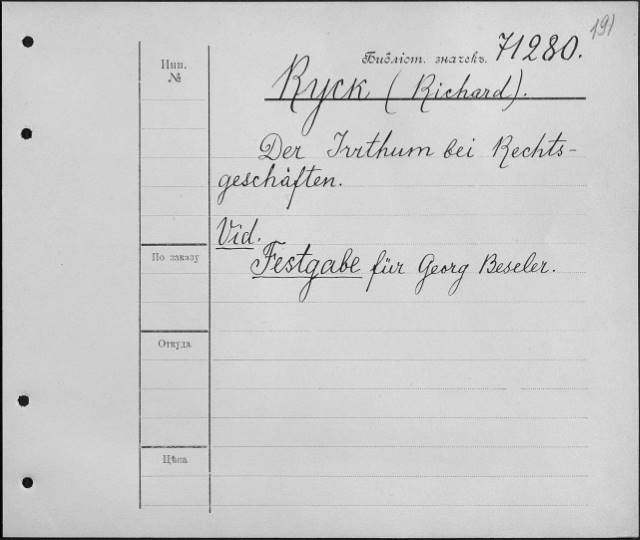 191
Инв. №
Библіот. значекъ. 71280.
Ryck (Richard).
Der Irrthum bei Rechts-
geschäften.
Vid.
Festgabe für Georg Beseler.
По заказу
Откуда
Цѣна